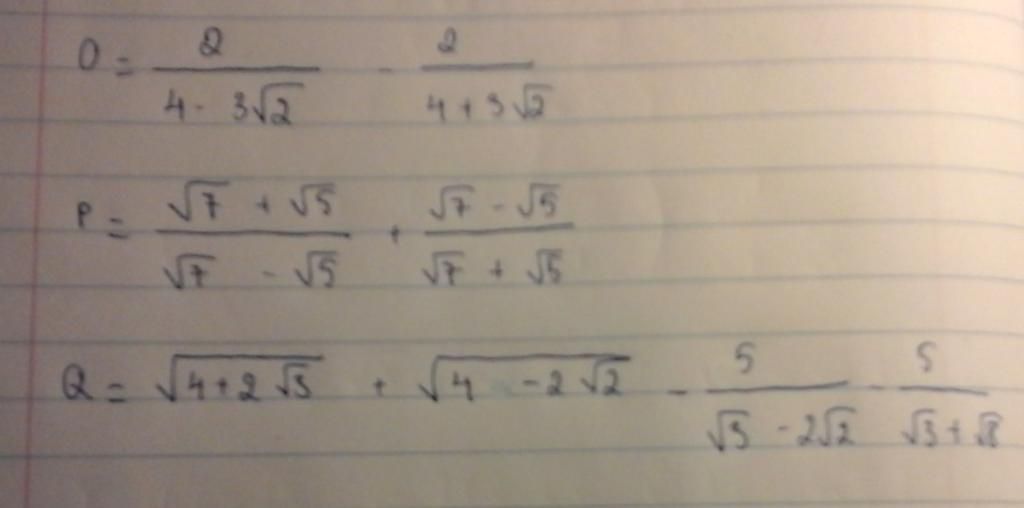 O = 2/(4 - 3√2) - 2/(4 + 3√2)
P = (√7 + √5)/(√7 - √5) + (√7 - √5)/(√7 + √5)
Q = √(4+2√3) + √(4 - 2√2) - 5/(√3 - 2√2) - 5/(√3 + √8)